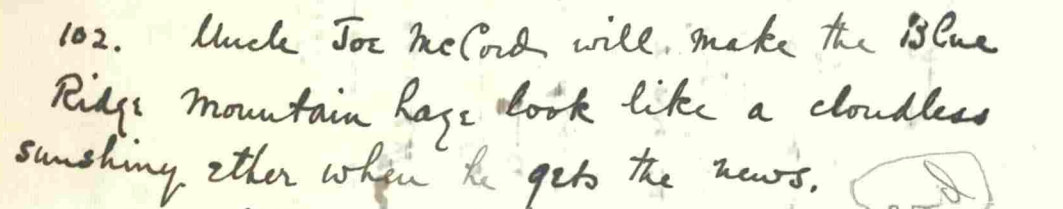 102. Uncle Joe McCord will make the Blue
Ridge Mountain haze look like a cloudless
sunshiny ether when he gets the news.